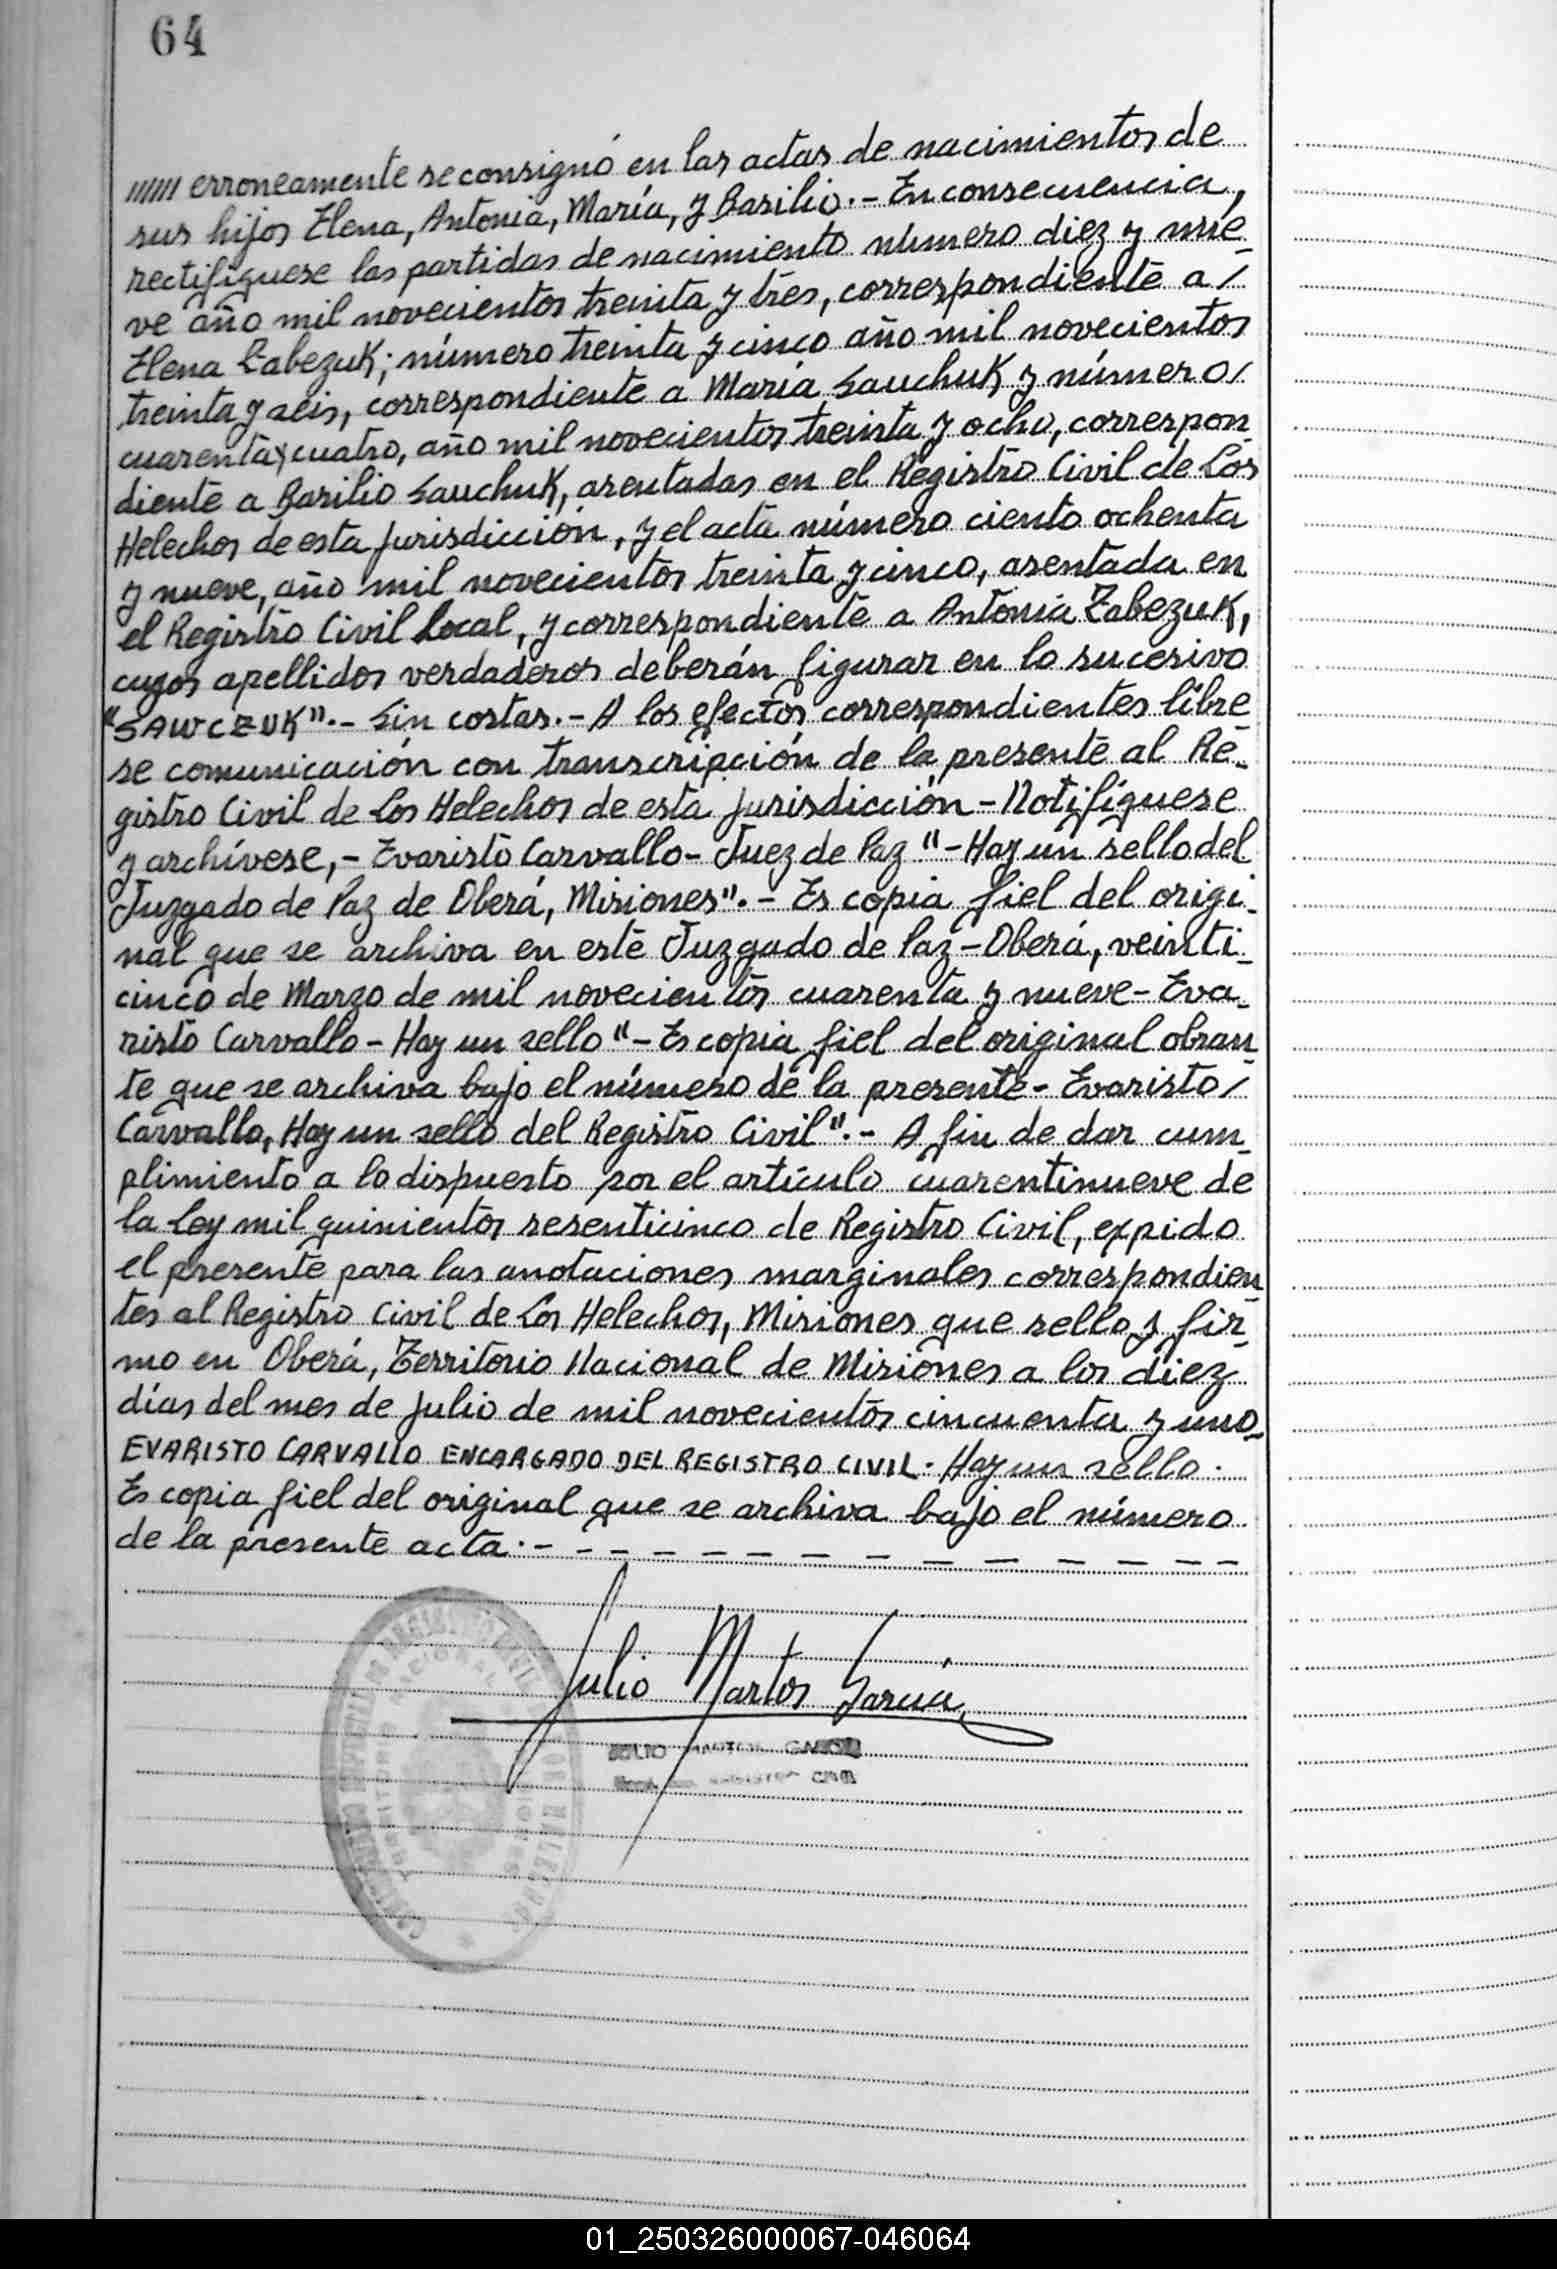 64
////// erroneamente se consignó en las actas de nacimientos de
sus hijos Elena, Antonia, María, y Basilio.- En consecuencia,
rectifíquese las partidas de nacimiento número diez y nue-
ve año mil novecientos treinta y tres, correspondiente a /
Elena Zabezuk; número treinta y cinco año mil novecientos
treinta y seis, correspondiente a María Sauchuk y número/
cuarenta y cuatro, año mil novecientos treinta y ocho, correspon-
diente a Basilio Sauchuk, asentadas en el Registro Civil de Los
Helechos de esta jurisdicción, y el acta número ciento ochenta
y nueve, año mil novecientos treinta y cinco, asentada en
el Registro Civil Local, y correspondiente a Antonia Zabezuk,
cuyos apellidos verdaderos deberán figurar en lo sucesivo
"SAWCZUK".- Sin costas.- A los efectos correspondientes libre
se comunicación con transcripción de la presente al Re-
gistro Civil de Los Helechos de esta jurisdicción - Notifíquese
y archívese,- Evaristo Carvallo- Juez de Paz "- Hay un sello del
Juzgado de Paz de Oberá, Misiones".- Es copia fiel del origi-
nal que se archiva en este Juzgado de Paz - Oberá, veinti-
cinco de Marzo de mil novecientos cuarenta y nueve - Eva-
risto Carvallo - Hay un sello "- Es copia fiel del original obran-
te que se archiva bajo el número de la presente - Evaristo/
Carvallo, Hay un sello del Registro Civil".- A fin de dar cum-
plimiento a lo dispuesto por el artículo cuarentinueve de
la Ley mil quinientos sesenticinco de Registro Civil, expido
el presente para las anotaciones marginales correspondien-
tes al Registro Civil de Los Helechos, Misiones que sello y fir-
mo en Oberá, Territorio Nacional de Misiones a los diez
días del mes de Julio de mil novecientos cincuenta y uno-
EVARISTO CARVALLO ENCARGADO DEL REGISTRO CIVIL. Hay un sello.
Es copia fiel del original que se archiva bajo el número
de la presente acta.- - - - - - - - - - - - - -
Julio Martos García
JULIO MARTOS GARCIA
01_250326000067-046064